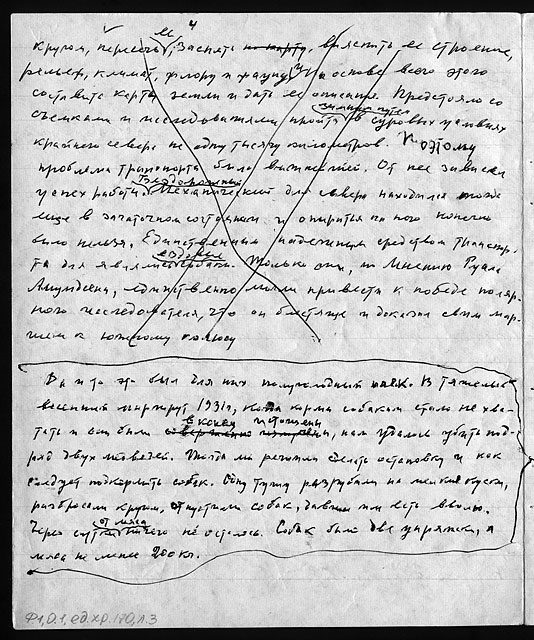 кругом, пересечь ее, и
заснять на карту, выяснить ее строение,
рельеф, климат, флору и фауну и на основе всего этого
составить карты земли и дать ее описание. Предстояло со
съемками и исследованиями пройти зимним путем в суровых условиях
крайнего севера не одну тысячу километров. Поэтому
проблема транспорта была важнейшей. От нее зависел
успех работы. Вездеходный механический для севера находился тогда
еще в зачаточном состоянии и опираться на него конечно
было нельзя. Единственным надежным средством транспор-
та для являлись ездовые собаки. Только они, по мнению Руала
Амундсена, единственно могли привести к победе поляр-
ного исследователя, что он блестяще и доказал своим мар-
шем к южному полюсу
Да и то это был для них полуголодный паек. В тяжелый
весенний маршрут 1931г, когда корма собакам стало не хва-
тать и они были совершенно в конец истощены, нам удалось убить под-
ряд двух медведей. Тогда мы решили сделать остановку и как
следует подкормить собак. Одну тушу разрубили на мелкие куски,
разбросали кругом, отпустили собак, давши им есть вволю.
Через сутки от мяса ничего не осталось. Собак было две упряжки, а
мяса не менее 200 кг.
Ф1,О.1,ед.хр.170,л.3